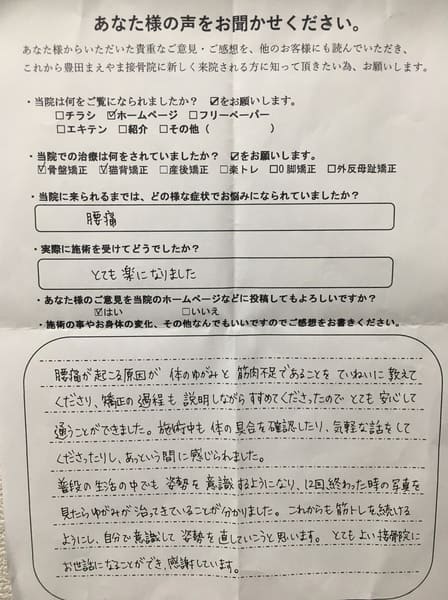 あなた様の声をお聞かせください。
あなた様からいただいた貴重なご意見・ご感想を、他のお客様にも読んでいただき、
これから豊田まえやま接骨院に新しく来院される方に知って頂きたい為、お願いします。
・当院は何をご覧になられましたか？ ☑をお願いします。
□チラシ ☑ホームページ □フリーペーパー
□エキテン □紹介 □その他（ ）
・当院での治療は何をされていましたか？ ☑をお願いします。
☑骨盤矯正 ☑猫背矯正 □産後矯正 □楽トレ □O脚矯正 □外反母趾矯正
・当院に来られるまでは、どの様な症状でお悩みになられていましたか？
腰痛
・実際に施術を受けてどうでしたか？
とても楽になりました
・あなた様のご意見を当院のホームページなどに投稿してもよろしいですか？
☑はい □いいえ
・施術の事やお身体の変化、その他なんでもいいですのでご感想をお書きください。
腰痛が起こる原因が 体のゆがみと 筋肉不足であることを ていねいに教えて
くださり、矯正の過程も 説明しながらすすめてくださったので とても 安心して
通うことができました。施術中も 体の具合を確認したり、気軽な話をして
くださったりし、あっという間に感じられました。
普段の生活の中でも 姿勢を 意識するようになり、12回終わった時の写真を
見たらゆがみが治ってきていることが分かりました。これからも筋トレを続ける
ようにし、自分で意識して 姿勢を 直していこうと思います。 とてもよい接骨院に
お世話になることができ、感謝しています。